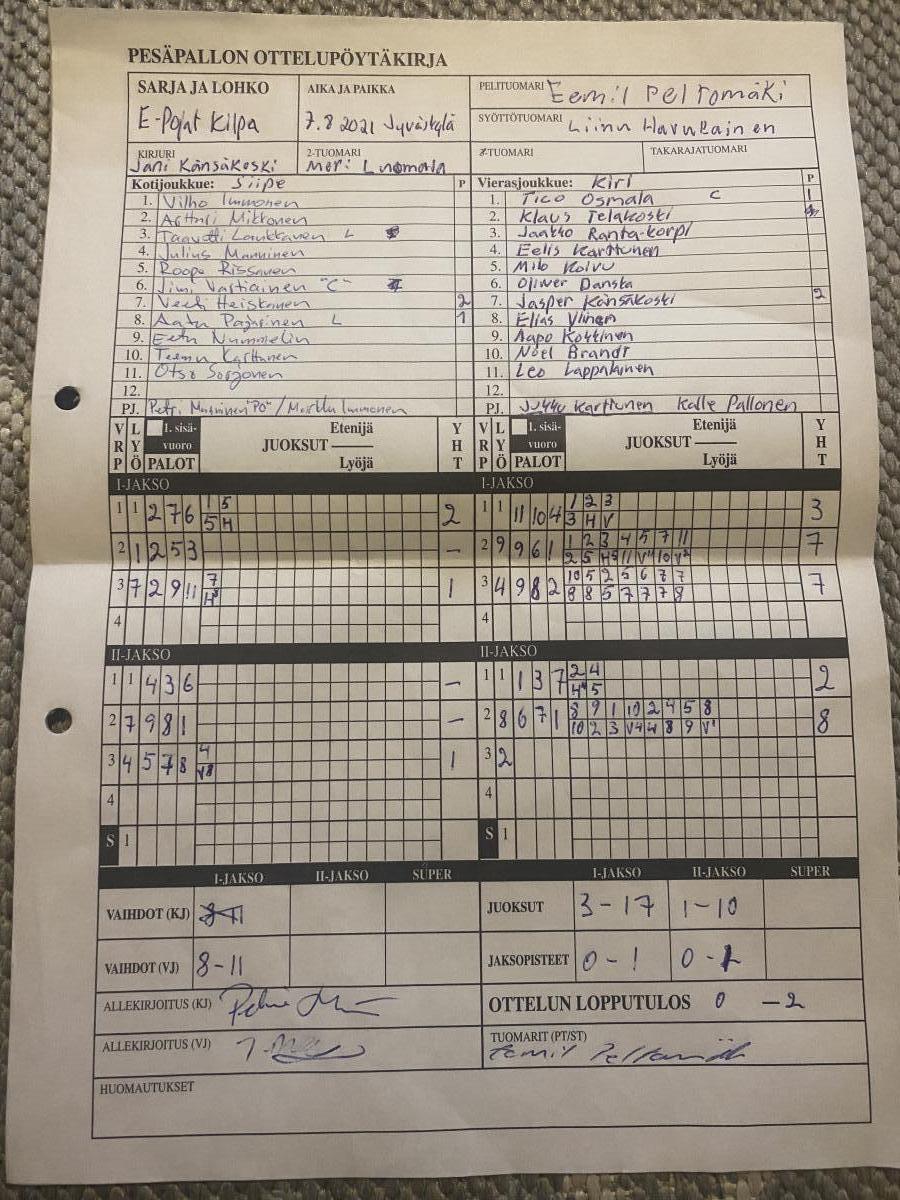 PESÄPALLON OTTELUPÖYTÄKIRJA
SARJA JA LOHKO
E-Pojat Kilpa
AIKA JA PAIKKA
7.8 2021 Jyväskylä
PELITUOMARI Eemil Peltomäki
SYÖTTÖTUOMARI Liinu Havukainen
KIRJURI
Jani Känsäkoski
2-TUOMARI
Meri Luomala
-TUOMARI
TAKARAJATUOMARI
Kotijoukkue: Siipe P
1. Vilho Immonen
2. Arttu Mikkonen
3. Taavetti Laukkanen L
4. Julius Manninen
5. Roope Rissanen
6. Jimi Vartiainen "C"
7. Veeti Heiskanen 2
8. Aatu Pajarinen L 1
9. Eetu Nummelin
10. Teemu Karttunen
11. Otso Sorjonen
12.
PJ. Petri Manninen "PO" / Markku Immonen
Vierasjoukkue: Kiri P
1. Tico Osmala C 1
2. Klaus Telakoski
3. Jaakko Ranta-korpi
4. Eelis Karttunen
5. Milo Koivu
6. Oliwer Danska
7. Jasper Känsäkoski 2
8. Elias Ylinen
9. Aapo Kokkinen
10. Noel Brandt
11. Leo Lappalainen
12.
PJ. Jukka Karttunen Kalle Pallonen
VRP LYÖ 1. sisävuoro PALOT JUOKSUT Etenijä Lyöjä YHT
VRP LYÖ 1. sisävuoro PALOT JUOKSUT Etenijä Lyöjä YHT
I-JAKSO
1 1 2 7 6 1 5 2
5 H
2 1 2 5 3 –
3 7 2 9 11 7 1
4
I-JAKSO
1 1 11 10 4 1 2 3 3
3 H V
2 9 9 6 1 1 2 3 4 5 7 11 7
3 4 9 8 2 10 5 2 5 6 7 7 7
8 8 5 7 7 7 8
4
II-JAKSO
1 1 4 3 6 –
2 7 9 8 1 –
3 4 5 7 8 4 1
V8
4
S 1
II-JAKSO
1 1 1 3 7 2 4 2
2 8 6 7 1 8 9 1 10 2 4 5 8 8
10 2 3 V4 4 8 9 V1
3 2
4
S 1
I-JAKSO II-JAKSO SUPER
VAIHDOT (KJ)
VAIHDOT (VJ) 8-11
I-JAKSO II-JAKSO SUPER
JUOKSUT 3-17 1-10
JAKSOPISTEET 0-1 0-1
ALLEKIRJOITUS (KJ)
OTTELUN LOPPUTULOS 0 -2
ALLEKIRJOITUS (VJ)
TUOMARIT (PT/ST)
Eemil Peltomäki
HUOMAUTUKSET